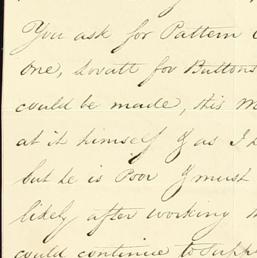 You ask for Pattern
one, Lovatt for Buttons
could be made, this
at it himself & as I
but he is Poor & must
likely after working
could continue to supp